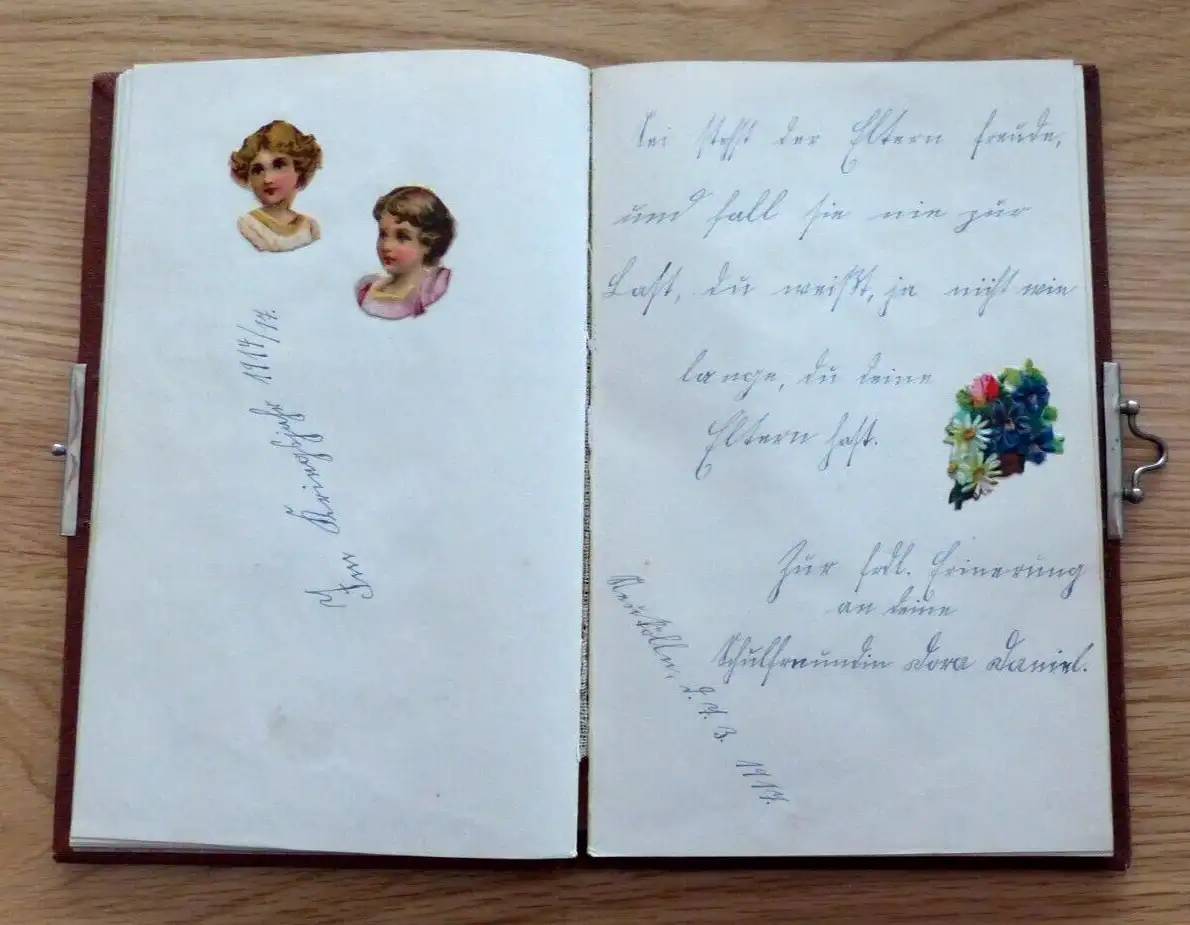 Im Kriegsjahr 1914/17.
Sei stehst der Eltern Freude,
und fall sie nie zur
Last, du weißt, ja nicht wie
lange, du deine
Eltern hast.
Zur frdl. Erinerung
an deine
Schulfreundin Dora Daniel.
Neukölln, d. 3. 1917.